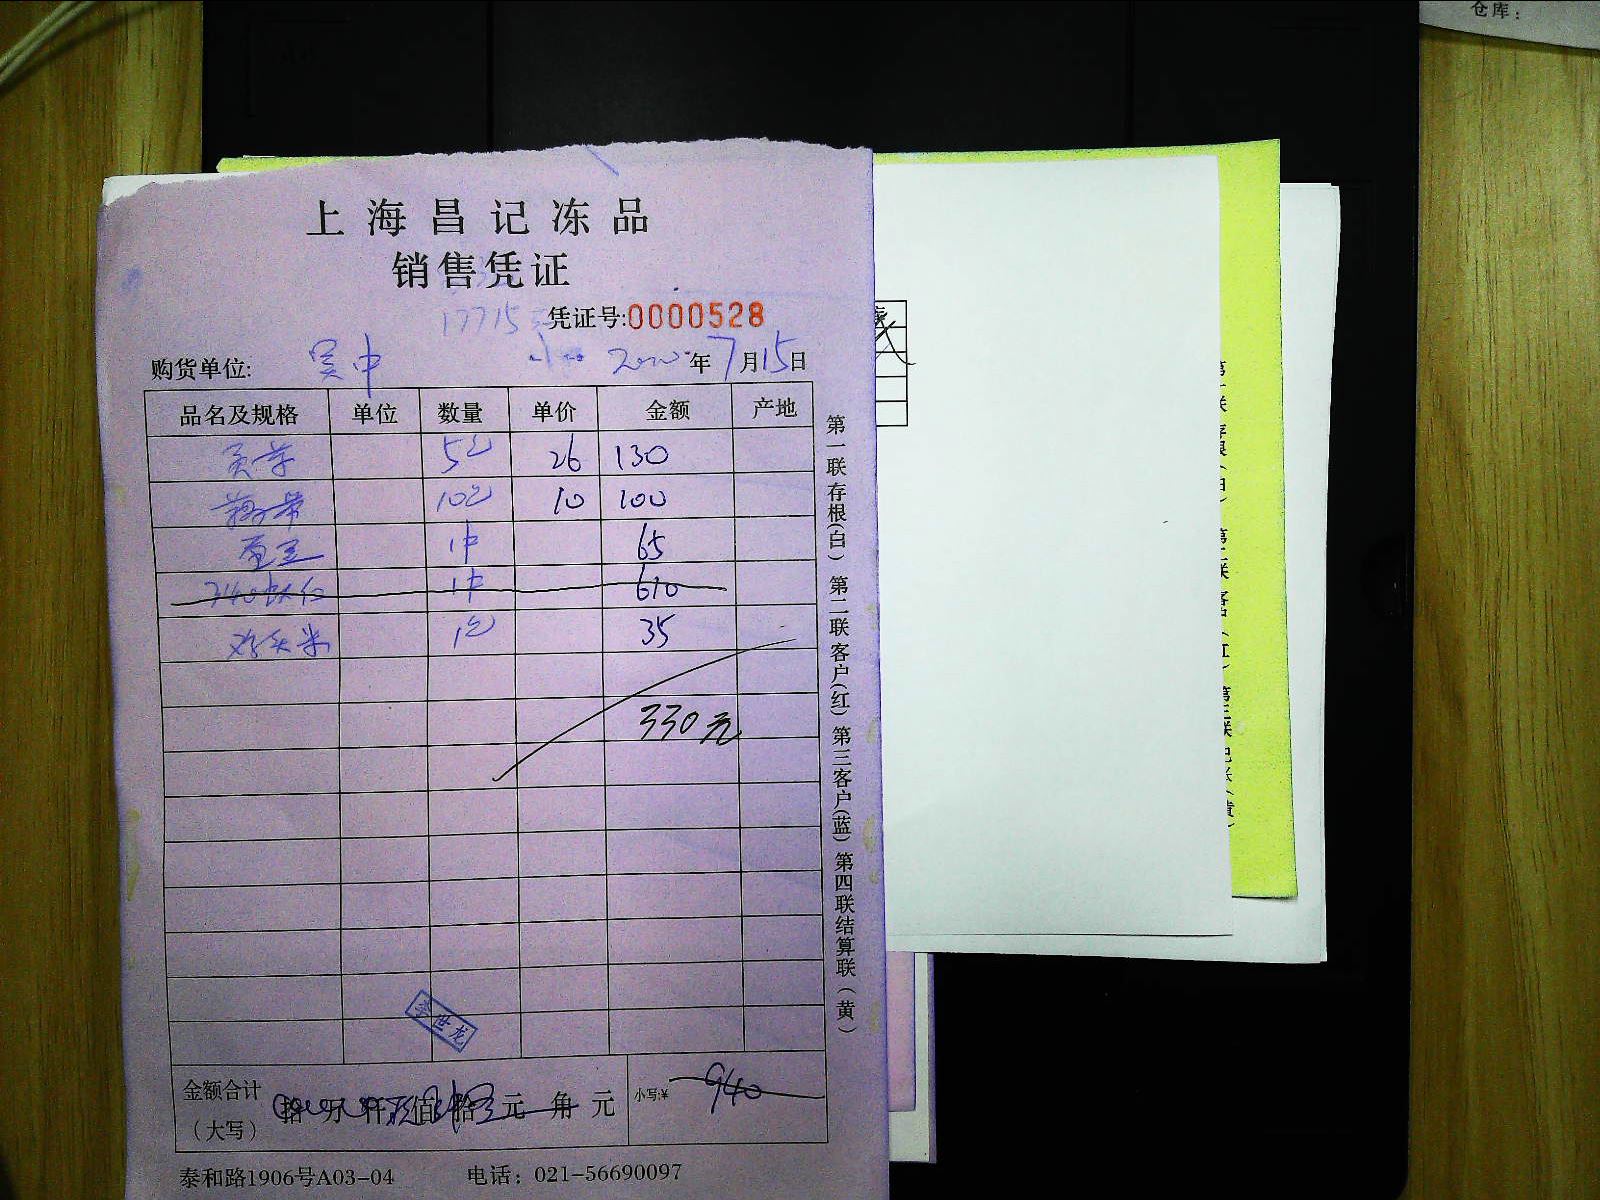 仓库：
上海昌记冻品
销售凭证
17715
凭证号:0000528
购货单位: 吴中 年7月15日
品名及规格 单位 数量 单价 金额 产地
5包 26 130
10包 10 100
1件 65
1件 610
鸡头米 1包 35
330元
李世龙
金额合计（大写） 拾 万 仟 佰 拾 元 角 元 小写:¥ 940
泰和路1906号A03-04 电话：021-56690097
第一联存根(白) 第二联客户(红) 第三客户(蓝) 第四联结算联(黄)